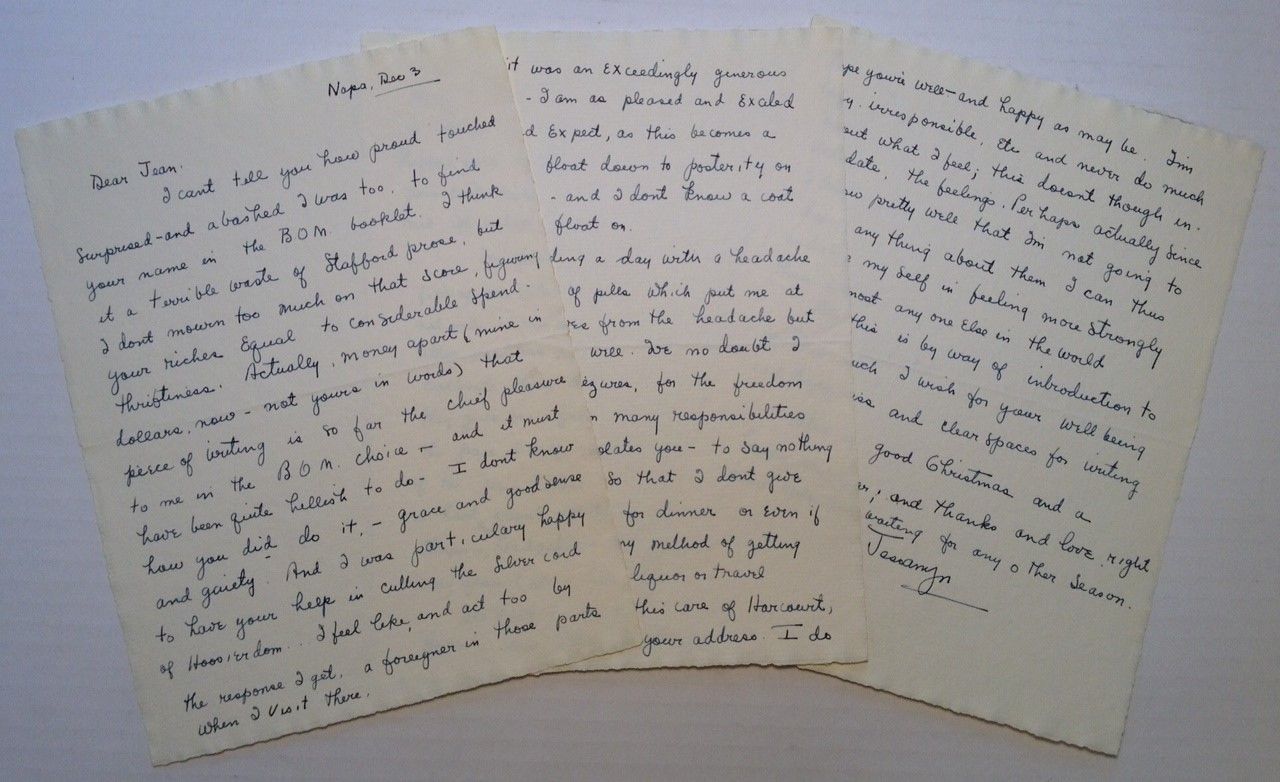 Napa, Dec 3
Dear Jean.
I cant tell you how proud touched
Surprised - and abashed I was too. to find
your name in the BOM. booklet. I think
it a terrible waste of Stafford prose, but
I dont mourn too much on that score, figuring
your riches Equal to considerable Spend.
thriftiness. Actually, money apart (mine in
dollars. now - not yours in words) that
peece of writing is so far the chief pleasure
to me in the BOM. choice - and it must
have been quite hellish to do - I dont know
how you did do it, - grace and good sense
and gaiety. And I was particulary happy
to have your help in cutting the Silver cord
of Hoosierdom.. I feel like, and act too by
the response I get, a foreigner in those parts
when I visit there.
it was an Exceedingly generous
- I am as pleased and Exaled
d Expect, as this becomes a
float down to posterity on
- and I dont know a coat
float on.
ding a day with a headache
of pills which put me at
res from the headache but
well. Ive no doubt I
ezures, for the freedom
n many responsibilities
olates you - to say nothing
So that I dont give
for dinner or Even if
ny method of getting
liquor or travel
this care of Harcourt,
your address. I do
pe you're well - and happy as may be. I'm
y. irresponsible, Etc and never do much
out what I feel; this doesnt though in.
date, the feelings. Perhaps actually Since
ow pretty well that I'm not going to
any thing about them I can thus
my self in feeling more strongly
most any one Else in the world
this is by way of introduction to
uch I wish for your well being
ss and clear spaces for writing
good Christmas and a
er; and thanks and love right
waiting for any other Season.
Jessamyn